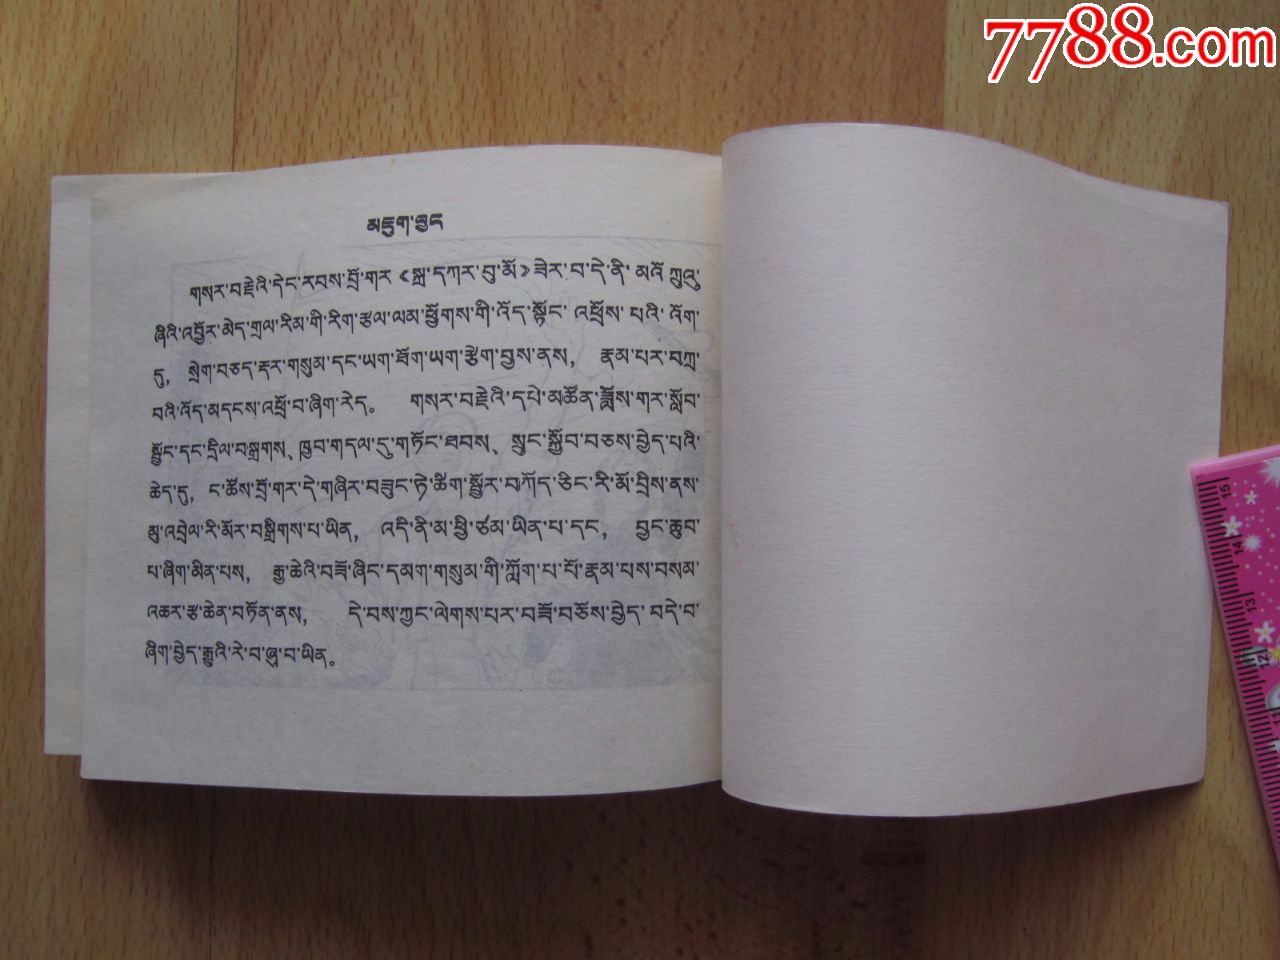 7788.com
མཇུག་བྱང
གསར་བརྗེའི་དེང་རབས་བྲོ་གར《སྐྲ་དཀར་བུ་མོ》ཟེར་བ་དེ་ནི་མའོ་ཀྲུའུ་
ཞིའི་འབྱོར་མེད་གྲལ་རིམ་གི་རིག་རྩལ་ལམ་ཕྱོགས་གི་འོད་སྟོང་འཕྲོས་པའི་འོག་
ཏུ, སྲེག་བཅད་རྡར་གསུམ་དང་ཡག་ཐོག་ཡག་རྩེག་བྱས་ནས, རྣམ་པར་བཀྲ་
བའི་འོད་མདངས་འཕྲོ་བ་ཞིག་རེད། གསར་བརྗེའི་དཔེ་མཚོན་ཟློས་གར་སློབ་
སྦྱོང་དང་དྲིལ་བསྒྲགས、ཁྱབ་གདལ་དུ་གཏོང་ཐབས、སྲུང་སྐྱོབ་བཅས་བྱེད་པའི་
ཆེད་དུ, ང་ཚོས་བྲོ་གར་དེ་གཞིར་བཟུང་ཏེ་ཚིག་སྦྱོར་བཀོད་ཅིང་རི་མོ་བྲིས་ནས་
མུ་འབྲེལ་རི་མོར་བསྒྲིགས་པ་ཡིན, འདི་ནི་མ་ཕྱི་ཙམ་ཡིན་པ་དང, བྱང་ཆུབ་
པ་ཞིག་མིན་པས, རྒྱ་ཆེའི་བཟོ་ཞིང་དམག་གསུམ་གི་ཀློག་པ་པོ་རྣམ་པས་བསམ་
འཆར་རྩ་ཆེན་བཏོན་ནས, དེ་བས་ཀྱང་ལེགས་པར་བཟོ་བཅོས་བྱེད་བདེ་བ་
ཞིག་བྱེད་རྒྱུའི་རེ་བ་ཞུ་བ་ཡིན།
15
14
13
12